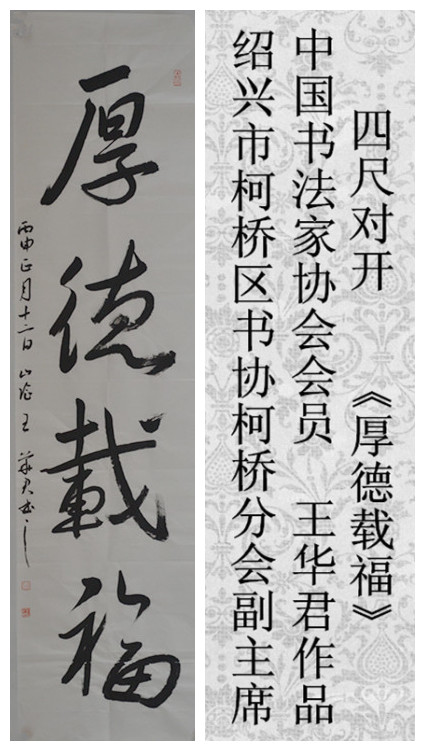 厚德載福
丙申正月十二日山阴王華君书之
四尺对开 《厚德载福》
中国书法家协会会员 王华君作品
绍兴市柯桥区书协柯桥分会副主席